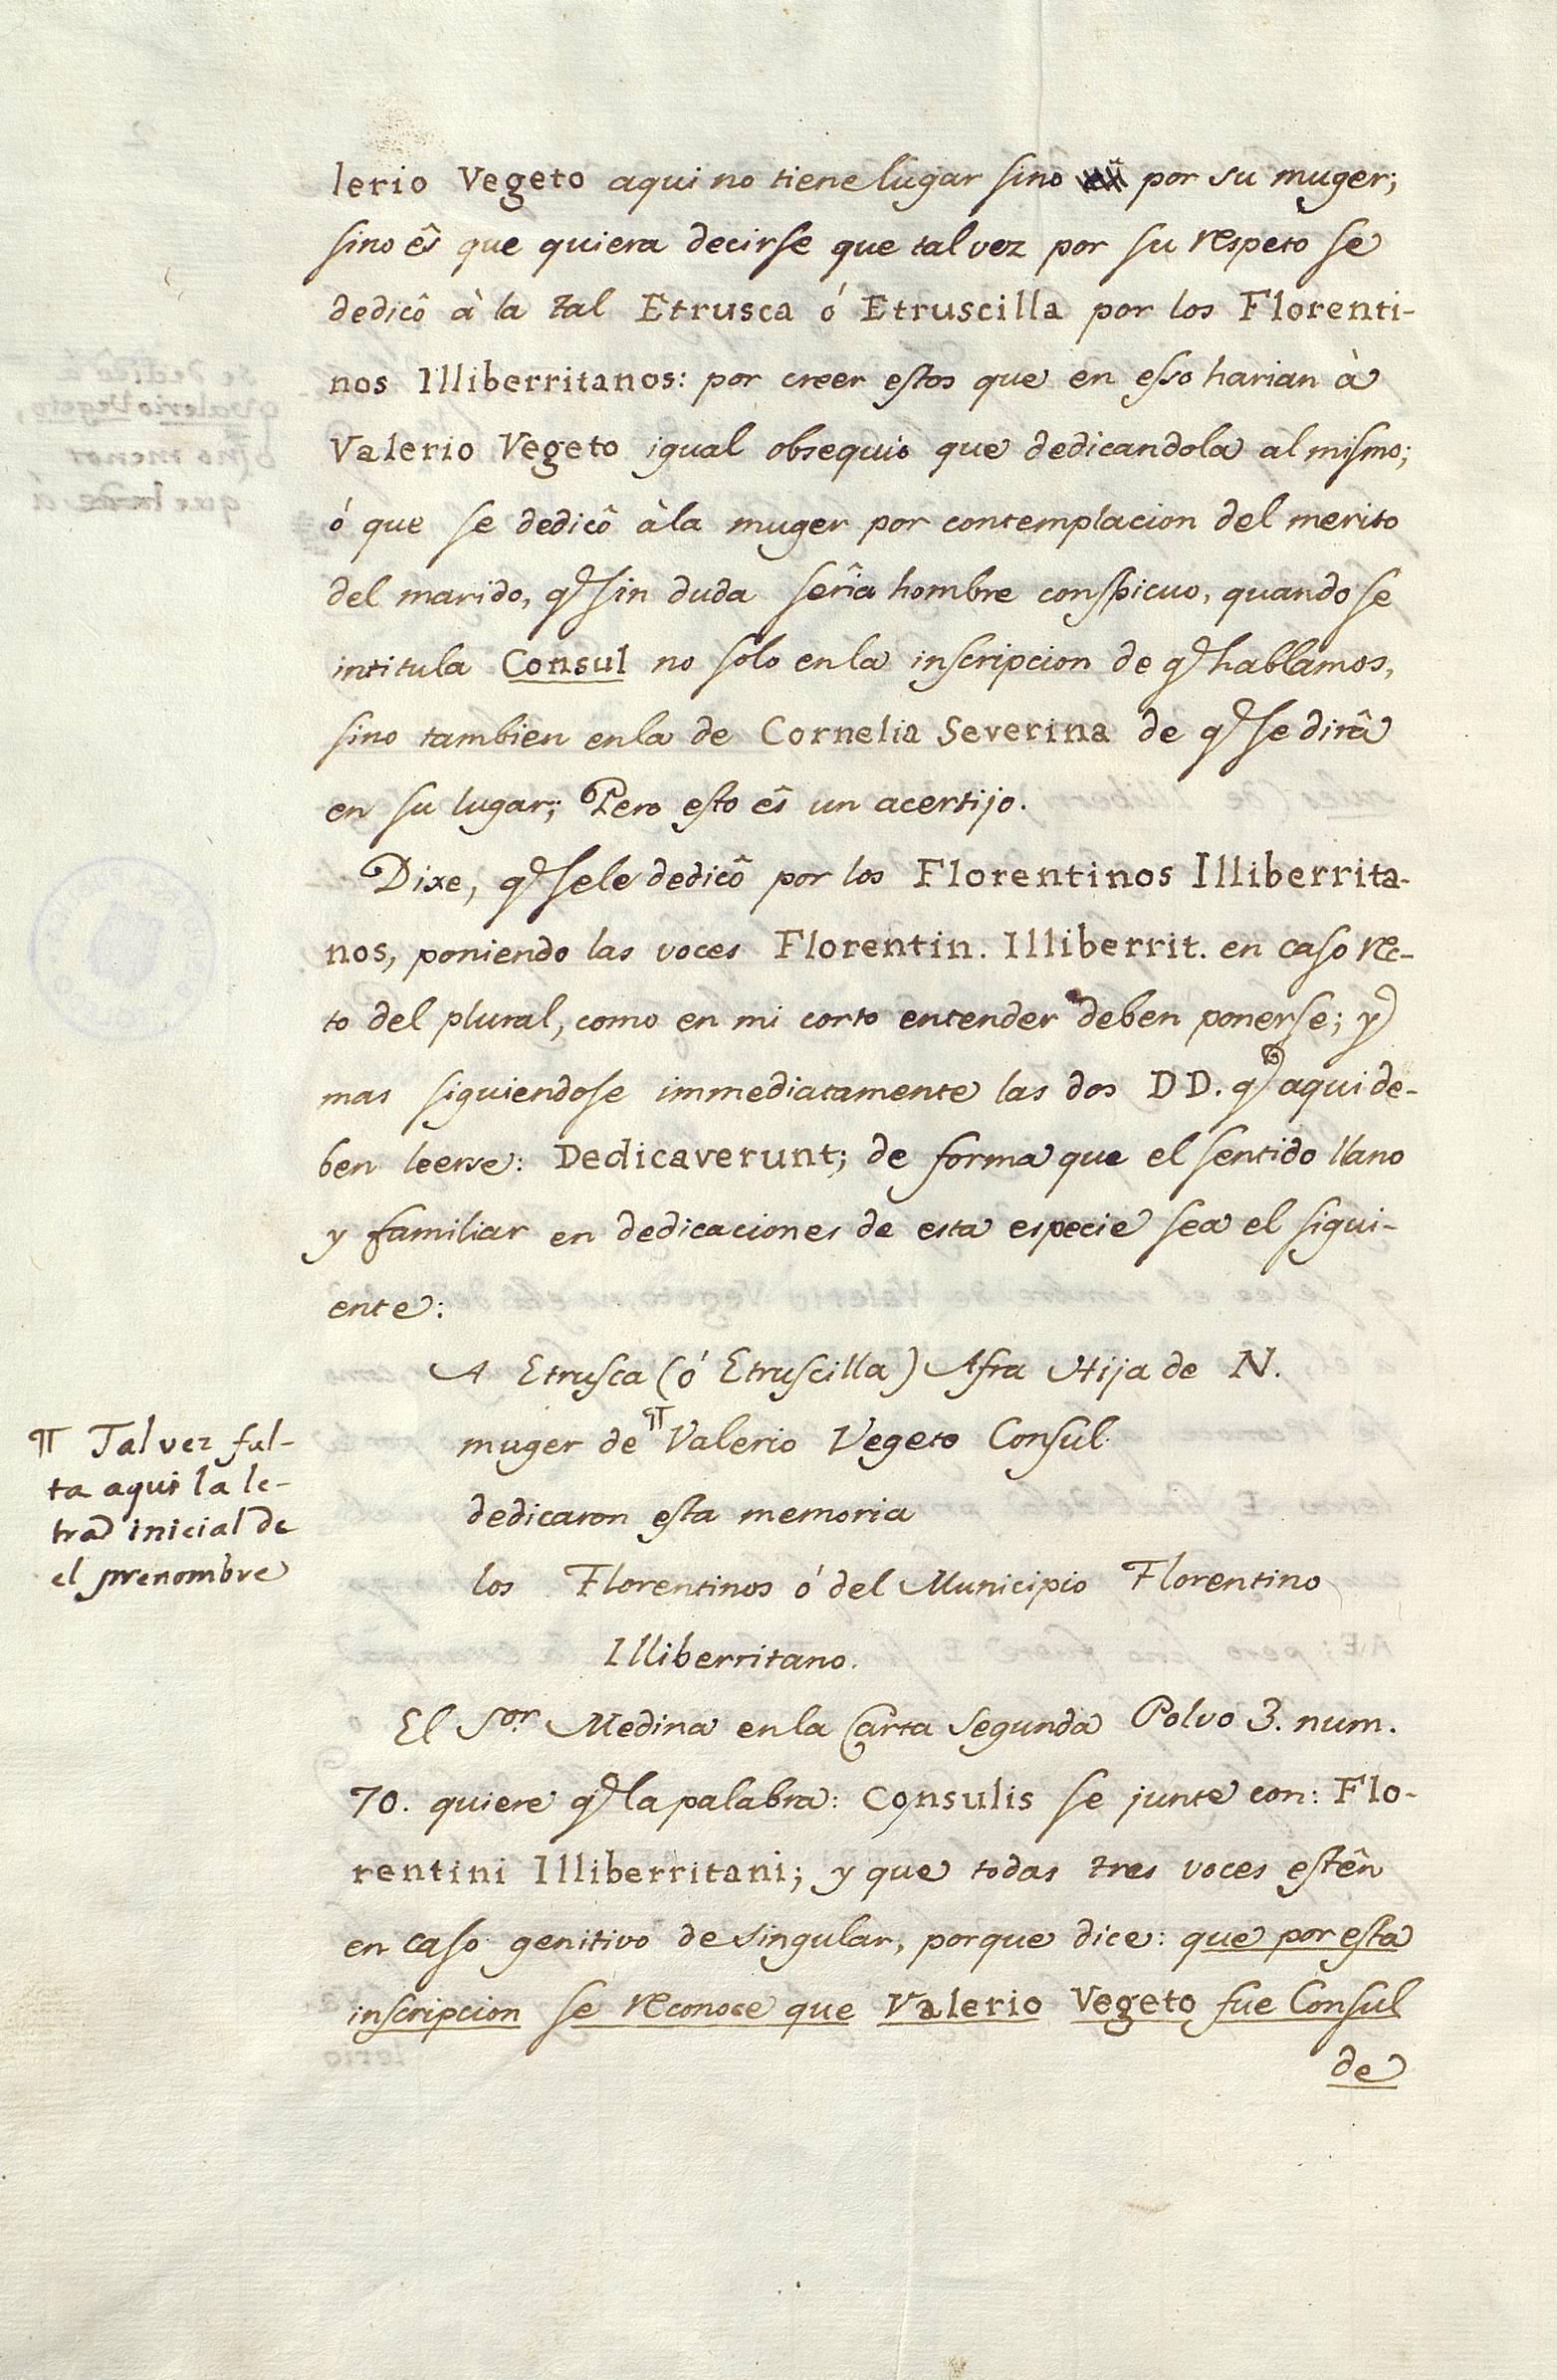 lerio Vegeto aqui no tiene lugar sino por su muger;
sino ês que quiera decirse que tal vez por su respeto se
dedicô à la tal Etrusca ó Etruscilla por los Florenti-
nos Illiberritanos: por creer estos que en esso harian à
Valerio Vegeto igual obsequio que dedicandola al mismo;
ó que se dedicô à la muger por contemplacion del merito
del marido, q sin duda serîa hombre conspicuo, quando se
intitula Consul no solo en la inscripcion de q hablamos,
sino tambien en la de Cornelia Severina de q se dirâ
en su lugar; Pero esto ês un acertijo.
Dixe, q se le dedicô por los Florentinos Illiberrita-
nos, poniendo las voces Florentin. Illiberrit. en caso rec-
to del plural, como en mi corto entender deben ponerse; y
mas siguiendose immediatamente las dos DD. q aqui de-
ben leerse: Dedicaverunt; de forma que el sentido llano
y familiar en dedicaciones de esta especie sea el sigui-
ente:
A Etrusca (ó Etruscilla) Afra Hija de N.
muger de ¶ Valerio Vegeto Consul
dedicaron esta memoria
los Florentinos ó del Municipio Florentino
Illiberritano.
¶ Tal vez fal-
ta aqui la le-
tra inicial de
el prenombre
El Sor. Medina en la Carta segunda Polvo 3. num.
70. quiere q la palabra: Consulis se junte con: Flo-
rentini Illiberritani; y que todas tres voces estên
en caso genitivo de singular, porque dice: que por esta
inscripcion se reconoce que Valerio Vegeto fue Consul
de